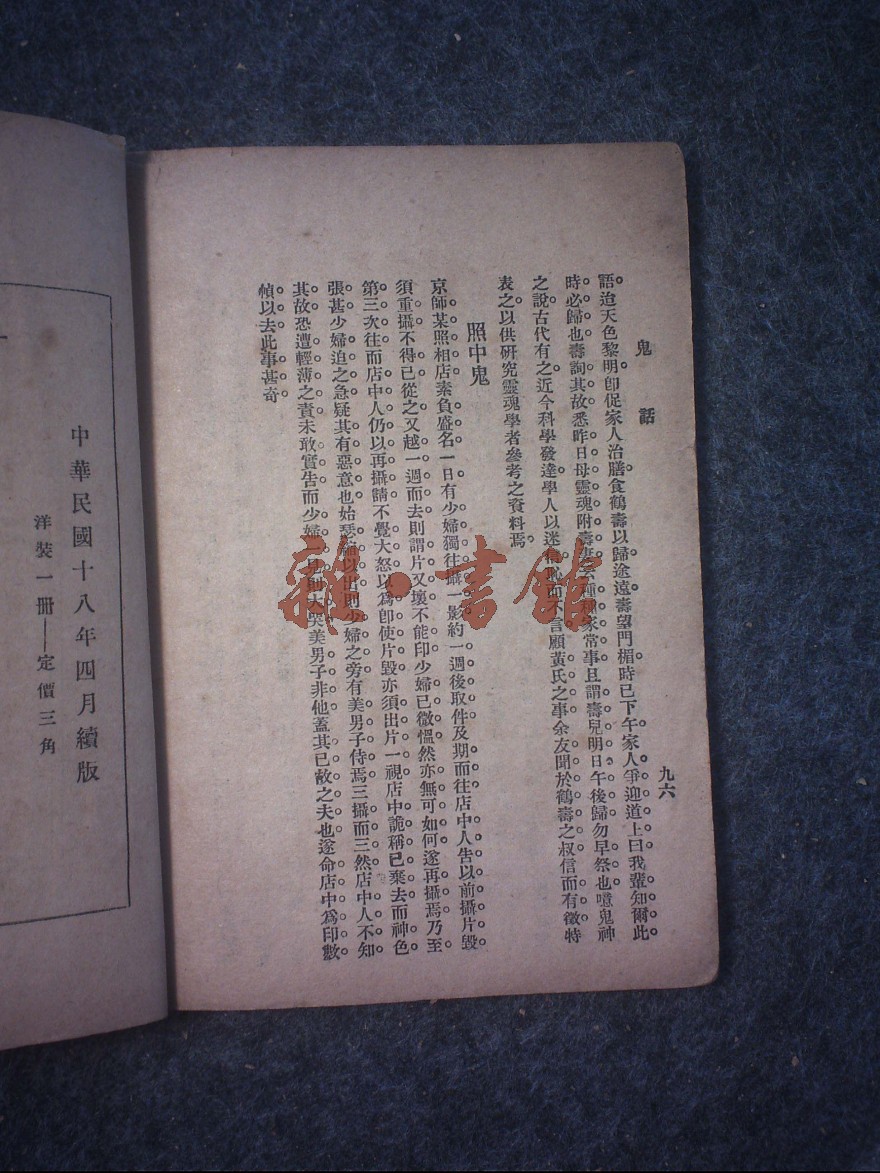 鬼話
九六
語迨天色黎明卽促家人治膳食鶴壽以歸途遠壽望門楣時已下午家人爭迎道上曰我輩知爾此
時必歸也壽詢其故悉昨日母靈魂附壽妻云家常事且謂壽兒明日午後歸勿早祭也噫鬼神
之說古代有之近今科學發達學人以迷而不言顧黃氏之事余友聞於鶴壽之叔信而有徵特
表之以供硏究靈魂學者參考之資料焉
照中鬼
京師某照相店素負盛名一日有少婦獨往攝一影約一週後取件及期而往店中人告以前攝片毀
須重攝不得已從之又越一週而去則謂片又壞不能印少婦已微慍然亦無可如何遂再攝焉乃至
第三次往而店中人仍以再攝請不覺大怒以爲卽使片毀亦須出片一視店中詭稱已棄去而神色
張甚少婦迫之急疑其有惡意也始瑟縮以出則少婦之旁有美男子侍焉三攝而三然店中人不知
其故恐遭輕薄之責未敢實告而少婦一見則大哭美男子非他蓋其已故之夫也遂命店中爲印數
幀以去此事甚奇
中華民國十八年四月續版
洋裝一冊——定價三角
雜·書館